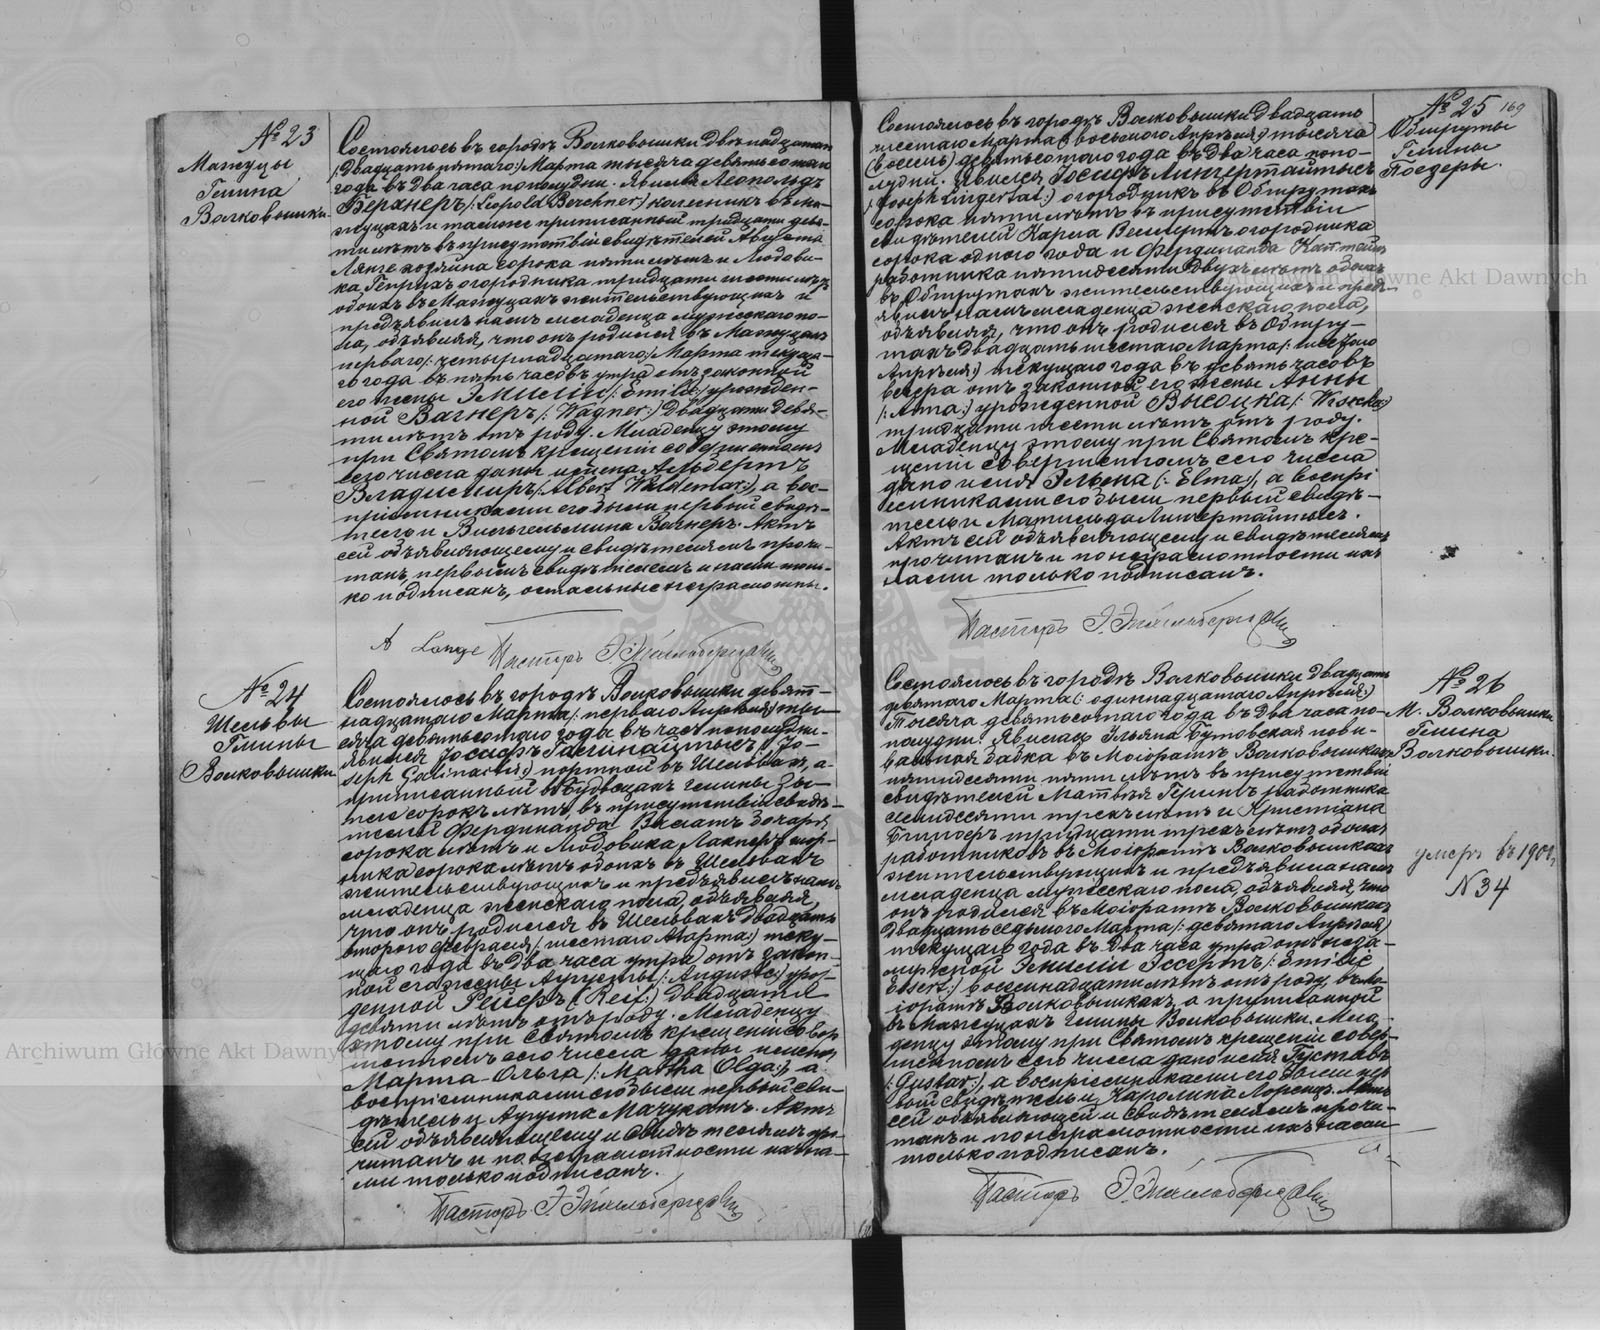 № 23
Мажуцы
Гмина
Волковышки
Состоялось въ городѣ Волковышки двѣнадцатаго
/:двадцать пятаго:/ Марта тысяча девятьсотаго
года въ два часа пополудни. Явился Леопольдъ
Берхнеръ /:Leopold Berchner:/ колесникъ въ Ма-
жуцахъ и тамже приписанный тридцати девя-
ти лѣтъ въ присутствіи свидѣтелей Августа
Лянге хозяина сорока пяти лѣтъ и Людови-
ка Генриха огородника тридцати шести лѣтъ
обоихъ въ Мажуцахъ жительствующихъ и
предъявилъ намъ младенца мужескаго по-
ла, объявляя, что онъ родился въ Мажуцахъ
перваго /:четырнадцатаго:/ Марта текуща-
го года въ пять часовъ утра отъ законной
его жены Эмиліи /:Emilie:/ урожден-
ной Вагнеръ /:Wagner:/ двадцати девя-
ти лѣтъ отъ роду. Младенцу этому
при Святомъ крещеніи совершенномъ
сего числа даны имена Альбертъ
Владимиръ /:Albert Waldemar:/, а вос-
пріемниками его были первый свидѣ-
тель и Вильгельмина Вагнеръ. Актъ
сей объявляющему и свидѣтелямъ прочи-
танъ, первымъ свидѣтелемъ и нами толь-
ко подписанъ, остальные неграмотны.
A Lange Пасторъ
№ 24
Шельвы
Гмины
Волковышки
Состоялось въ городѣ Волковышки девят-
надцатаго Марта /:перваго Апрѣля:/ ты-
сяча девятьсотаго года въ часъ пополудни.
Явился Іосифъ Галинайтысъ /:Jo-
seph Galinaitis:/ портной въ Шельвахъ, а
приписанный въ гмины Зы-
пле сорокъ лѣтъ, въ присутствіи свидѣ-
телей Фердинанда
сорока лѣтъ и Людовика порт-
ника сорока лѣтъ обоихъ въ Шельвахъ
жительствующихъ и предъявилъ намъ
младенца женскаго пола, объявляя,
что онъ родился въ Шельвахъ двадцать
второго Февраля /:шестаго Марта:/ теку-
щаго года въ два часа утра отъ закон-
ной его жены Августы /:Auguste:/ урож-
денной Рейфъ /:Reif:/ двадцати
девяти лѣтъ отъ роду. Младенцу
этому при Святомъ крещеніи совер-
шенномъ сего числа даны имена
Марта-Ольга /:Martha Olga:/, а
воспріемниками его были первый сви-
дѣтель и Августа Мачукатъ. Актъ
сей объявляющему и свидѣтелямъ про-
читанъ и по неграмотности ихъ на-
ми только подписанъ.
Пасторъ
169
№ 25
Обшруты
Гмины
Поезеры.
Состоялось въ городѣ Волковышки двадцать
шестаго Марта (восьмого Апрѣля) тысяча
(восемь) девятьсотаго года въ два часа попо-
лудни. Явился, Іосифъ Лингертайтысъ
/:Joseph Lingertat:/ огородникъ въ Обшрутахъ
сорока пяти лѣтъ въ присутствіи
свидѣтелей Карла огородника
сорока одного года и Фердинанда
работника пятидесяти двухъ лѣтъ обоихъ
въ Обшрутахъ жительствующихъ и предъ-
явилъ намъ младенца женскаго пола,
объявляя, что онъ родился въ Обшру-
тахъ двадцать шестаго Марта /:восьмого
Апрѣля:/ текущаго года въ девять часовъ
вечера отъ законной его жены Анны
/:Anna:/ урожденной Высоцка
тридцати шести лѣтъ отъ роду.
Младенцу этому при Святомъ кре-
щеніи совершенномъ сего числа
дано имя Эльма /:Elma:/, а воспрі-
емниками его были первый свидѣ-
тель и Матильда Лингертайтысъ.
Актъ сей объявляющему и свидѣтелямъ
прочитанъ и по неграмотности ихъ
нами только подписанъ.
Пасторъ
№ 26
М. Волковышки
Гмина
Волковышки.
умеръ въ 1900 г.
N 34
Состоялось въ городѣ Волковышки двадцать
девятаго Марта /:одиннадцатаго Апрѣля:/
Тысяча девятьсотаго года въ два часа по-
полудни. Явилась Ульяна Бутовская пови-
вальная бабка въ Маіоратѣ Волковышкахъ
пятидесяти пяти лѣтъ въ присутствіи
свидѣтелей Матвѣя работника
семидесяти трехъ лѣтъ и Христіана
тридцати трехъ лѣтъ обоихъ
работниковъ въ Маіоратѣ Волковышкахъ
жительствующихъ и предъявила намъ
младенца мужескаго пола, объявляя, что
онъ родился въ Маіоратѣ Волковышкахъ
двадцать седьмого Марта /:девятаго Апрѣля:/
текущаго года въ два часа утра отъ неза-
мужной Эмиліи Эссертъ /:Emilie
Essert:/ восемнадцати лѣтъ отъ роду, въ Ма-
іоратѣ Волковышкахъ, а приписанной
въ Мажуцахъ гмины Волковышки. Мла-
денцу этому при Святомъ крещеніи совер-
шенномъ сего числа дано имя Густавъ
/:Gustav:/, а воспріемниками его были пер-
вый свидѣтель и Каролина Лоренцъ. Актъ
сей объявляющей и свидѣтелямъ прочи-
танъ и по неграмотности ихъ нами
только подписанъ.
Пасторъ
Archiwum Główne Akt Dawnych
Główne Akt Dawnych